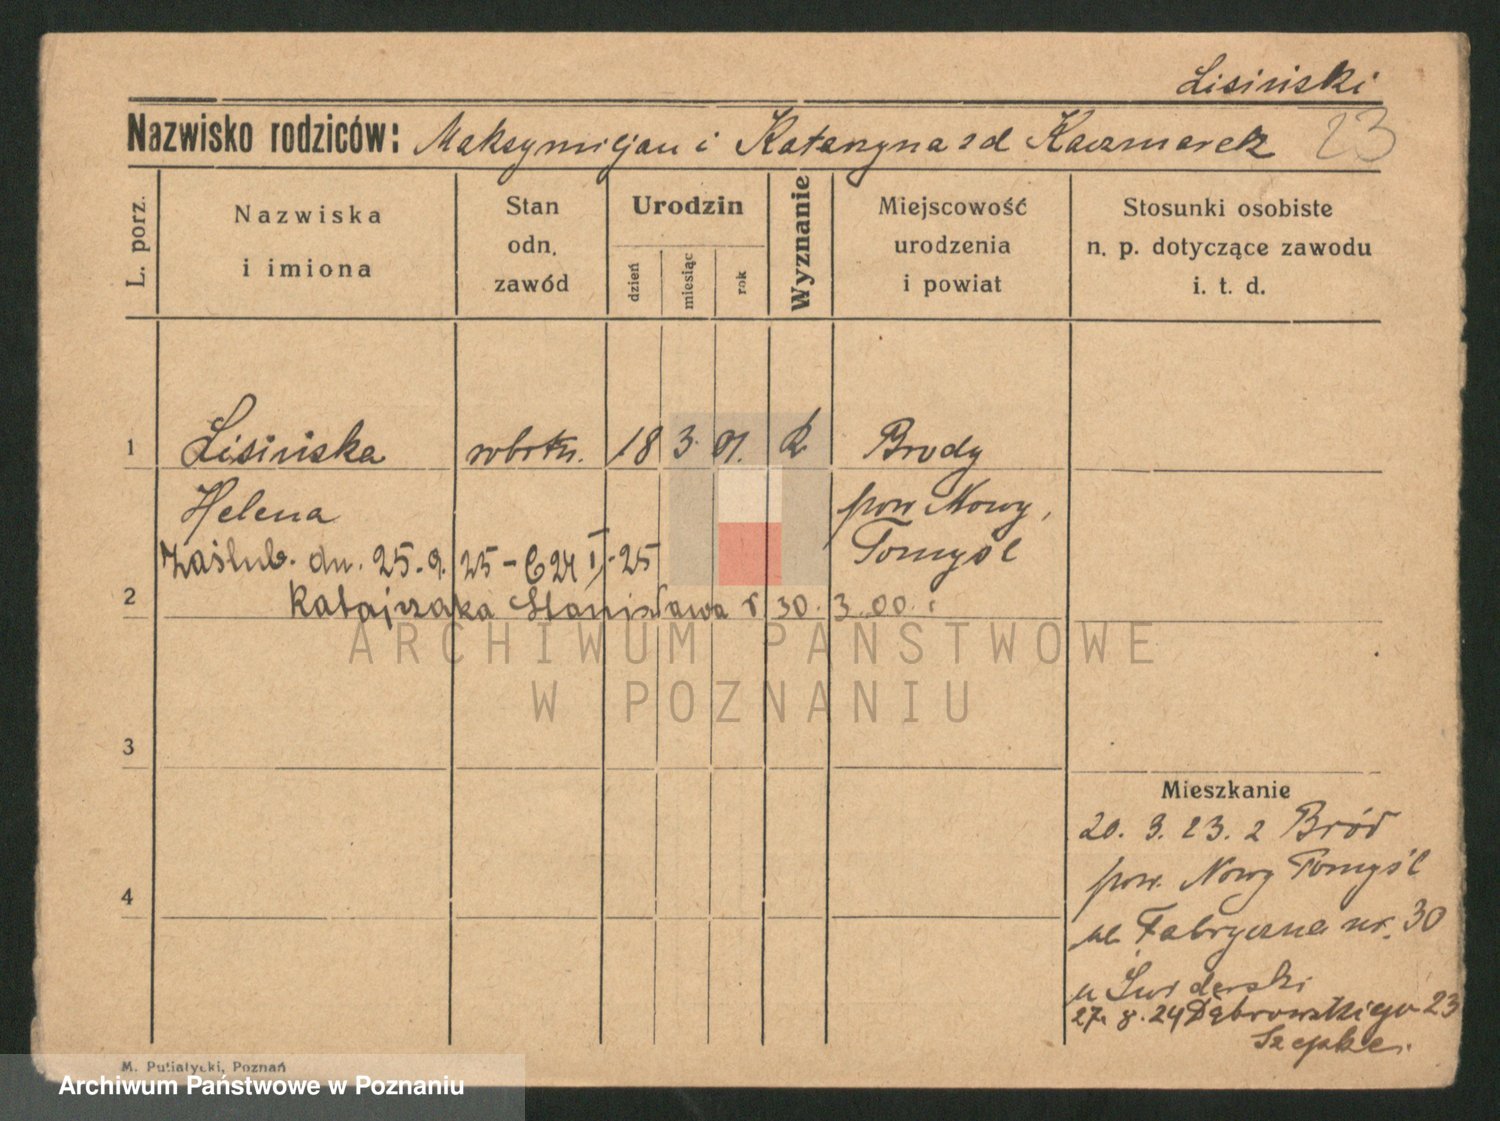 Lisiński
Nazwisko rodziców: Maksymiljan i Katarzyna zd Kaczmarek 23
L. porz.
Nazwiska
i imiona
Stan
odn.
zawód
Urodzin
dzień
miesiąc
rok
Wyznanie
Miejscowość
urodzenia
i powiat
Stosunki osobiste
n. p. dotyczące zawodu
i. t. d.
1 Lisińska robotn. 18 3. 01. k Brody
Helena pow Nowy
Tomyśl
zaślub. dn. 25.9. 25 - C 24 I - 25
2 Ratajczaka Stanisława r 30. 3.00.
ARCHIWUM PAŃSTWOWE
W POZNANIU
3
4
Mieszkanie
20. 3. 23. z Bród
pow. Nowy Tomyśl
ul. Fabryczna nr. 30
u Świderski
27. 8. 24 Dąbrowskiego 23
M. Putiatycki, Poznań
Archiwum Państwowe w Poznaniu